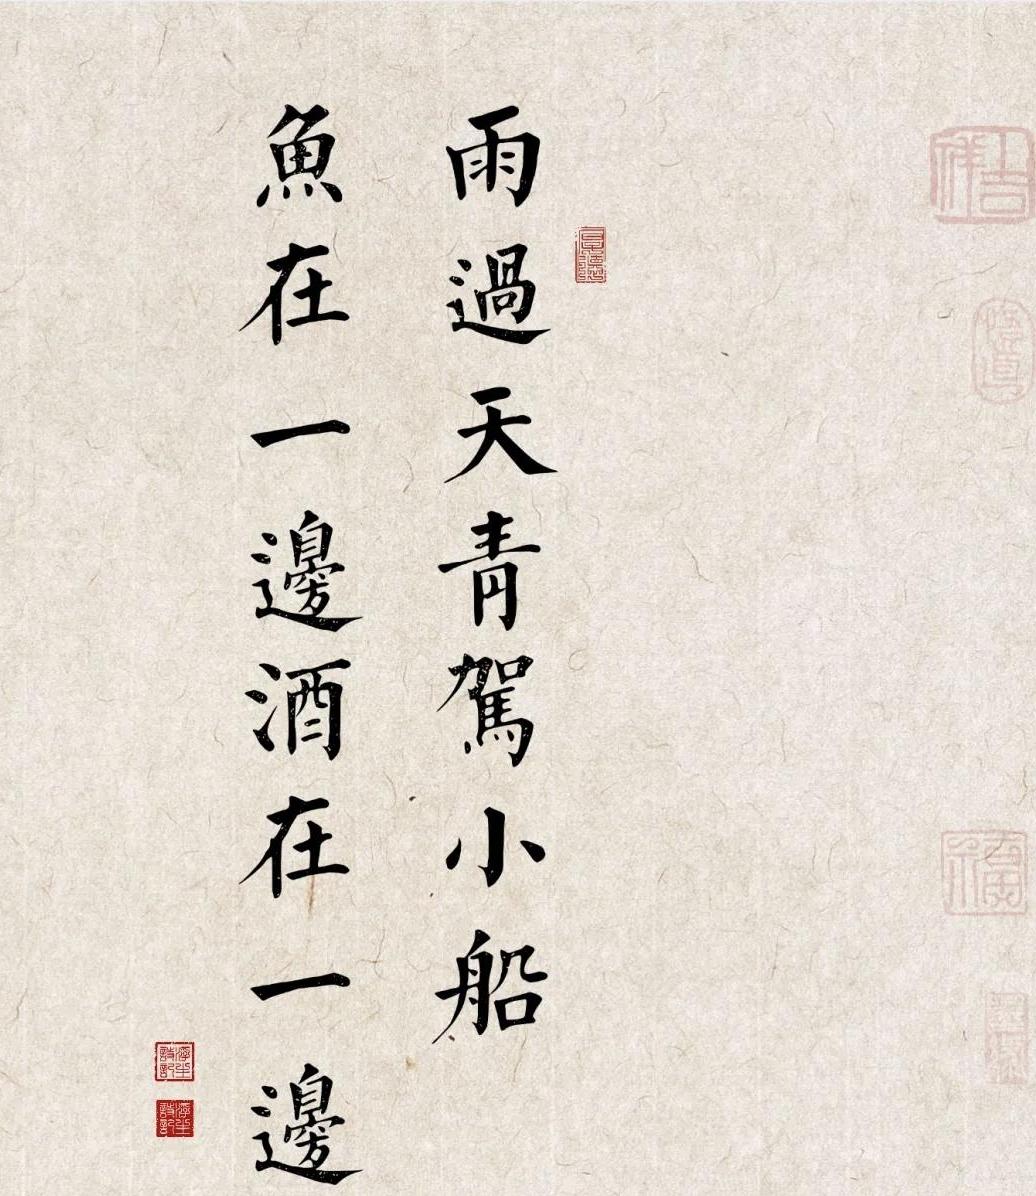 雨過天青駕小船
魚在一邊酒在一邊